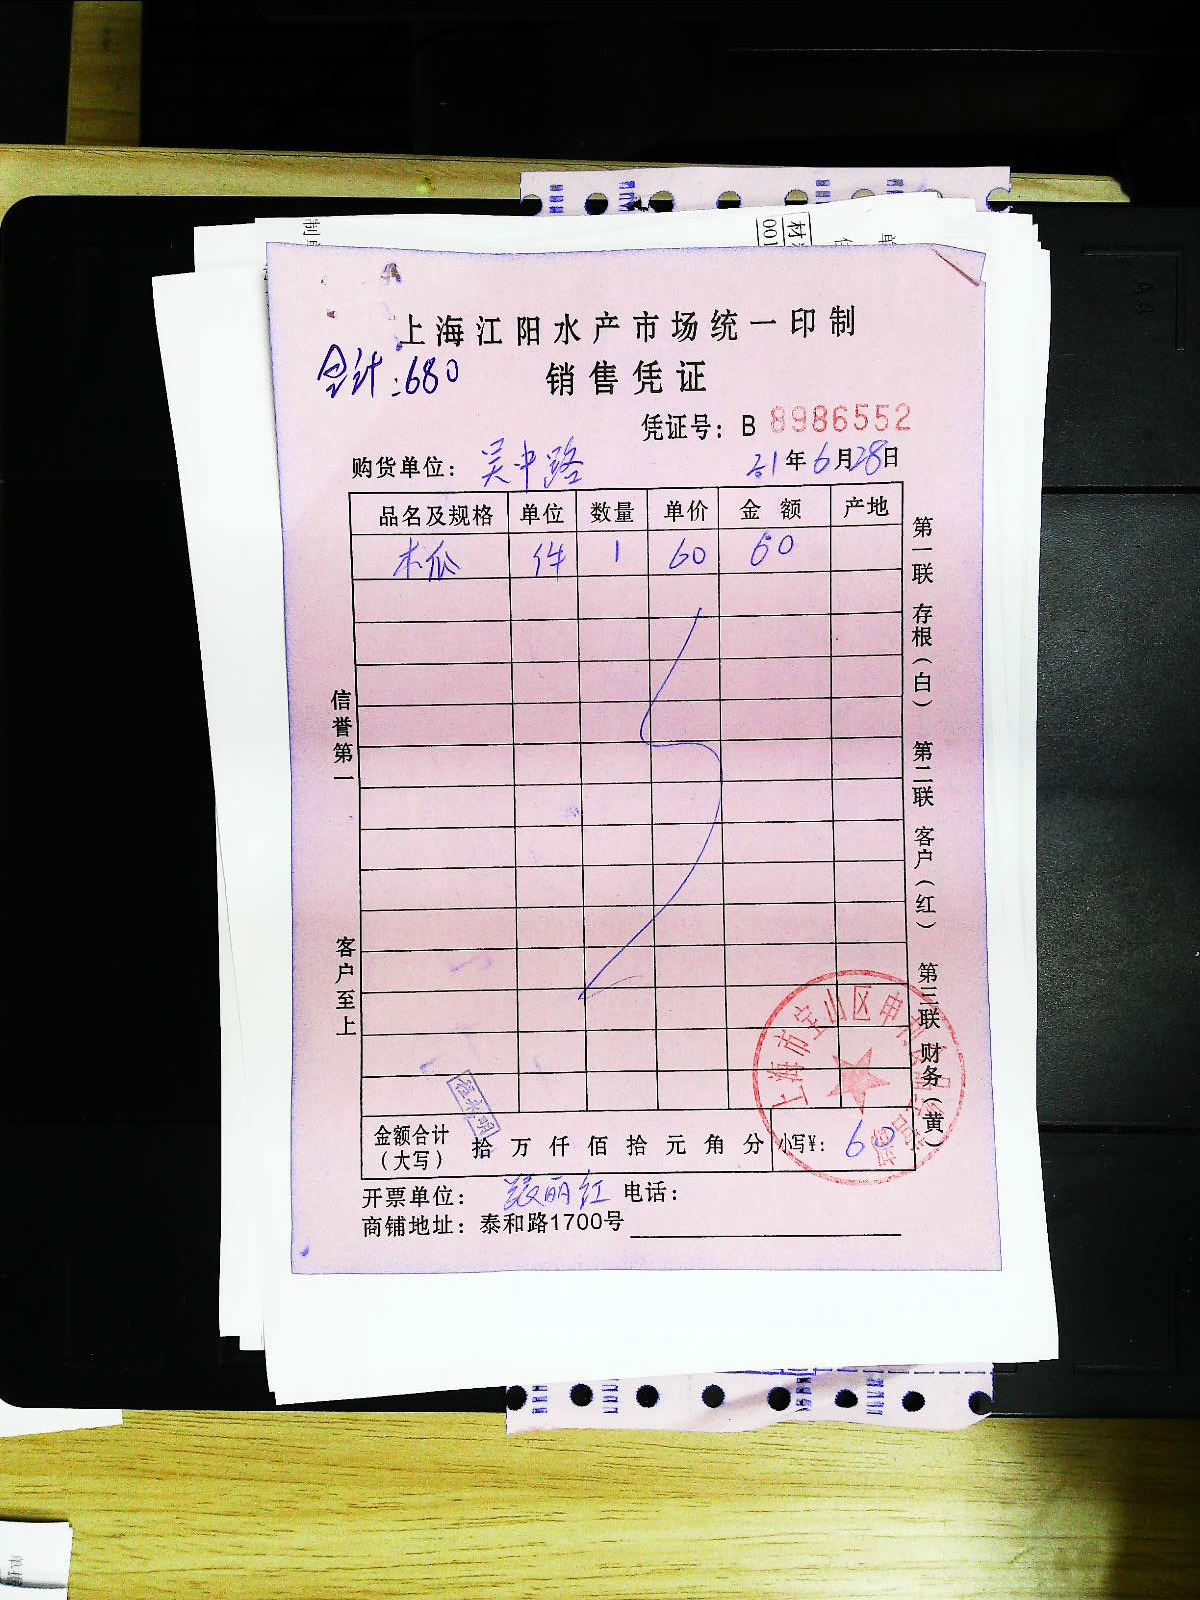 上海江阳水产市场统一印制
合计:680
销售凭证
凭证号：B 8986552
购货单位：吴中路
21年6月28日
品名及规格 单位 数量 单价 金 额 产地
木瓜 件 1 60 60
信誉第一
客户至上
第一联 存根（白） 第二联 客户（红） 第三联 财务（黄）
上海市宝山区申
金额合计（大写） 拾 万 仟 佰 拾 元 角 分 小写¥: 60
开票单位： 丽红 电话：
商铺地址：泰和路1700号